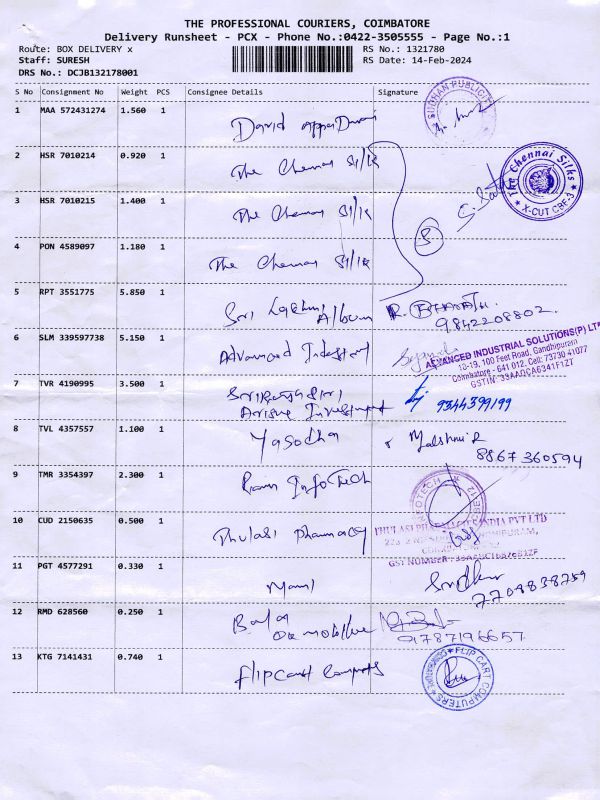 THE PROFESSIONAL COURIERS, COIMBATORE
Delivery Runsheet - PCX - Phone No.:0422-3505555 - Page No.:1
Route: BOX DELIVERY x
RS No.: 1321780
Staff: SURESH
RS Date: 14-Feb-2024
DRS No.: DCJB132178001
S No Consignment No Weight PCS Consignee Details Signature
1 MAA 572431274 1.560 1 David
2 HSR 7010214 0.920 1 The Chennai Silk
3 HSR 7010215 1.400 1 The Chennai Silk
4 PON 4589097 1.180 1 The Chennai Silk
5 RPT 3551775 5.850 1 Sri Lakshmi Album R. BHARATH.
9842208802.
6 SLM 339597738 5.150 1 Advanced
ADVANCED INDUSTRIAL SOLUTIONS(P) LTD
13-19, 100 Feet Road, Gandhipuram
Coimbatore - 641 012. Cell: 73730 41077
GSTIN: 33AADCA6341F1ZT
7 TVR 4190995 3.500 1
Arisue Investment 9344399199
8 TVL 4357557 1.100 1 Yasodha
8867360594
9 TMR 3354397 2.300 1 Ram InfoTech
10 CUD 2150635 0.500 1 Thulasi Pharmacy
THULASI PHARMACY INDIA PVT LTD
GST NUMBER
11 PGT 4577291 0.330 1 Mani Sridhar
7708838759
12 RMD 628560 0.250 1 Balaji
9787196657
13 KTG 7141431 0.740 1 Flipcart Computers
SUDHAN PUBLICITY
The Chennai Silks
X-CUT CBE-3
FLIP CART COMPUTERS